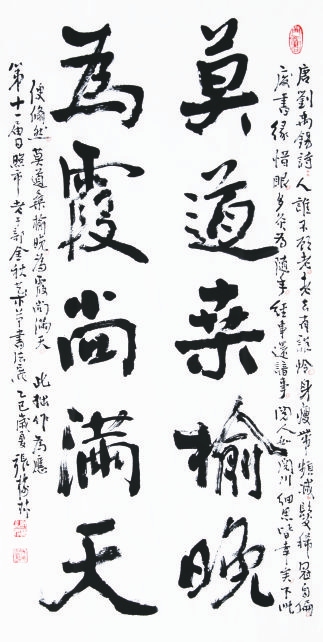 唐劉禹錫詩人誰不顧老老去有誰憐身瘦帶頻減髮稀冠自偏
廢書緣惜眼多灸為隨年經事還諳事閱人如閱川細思皆幸矣下此
莫道桑榆晚
為霞尚滿天
便翛然莫道桑榆晚為霞尚滿天 此拙作為應
第十一届日照市老干部金秋艺术节書法展乙巳歲夏張